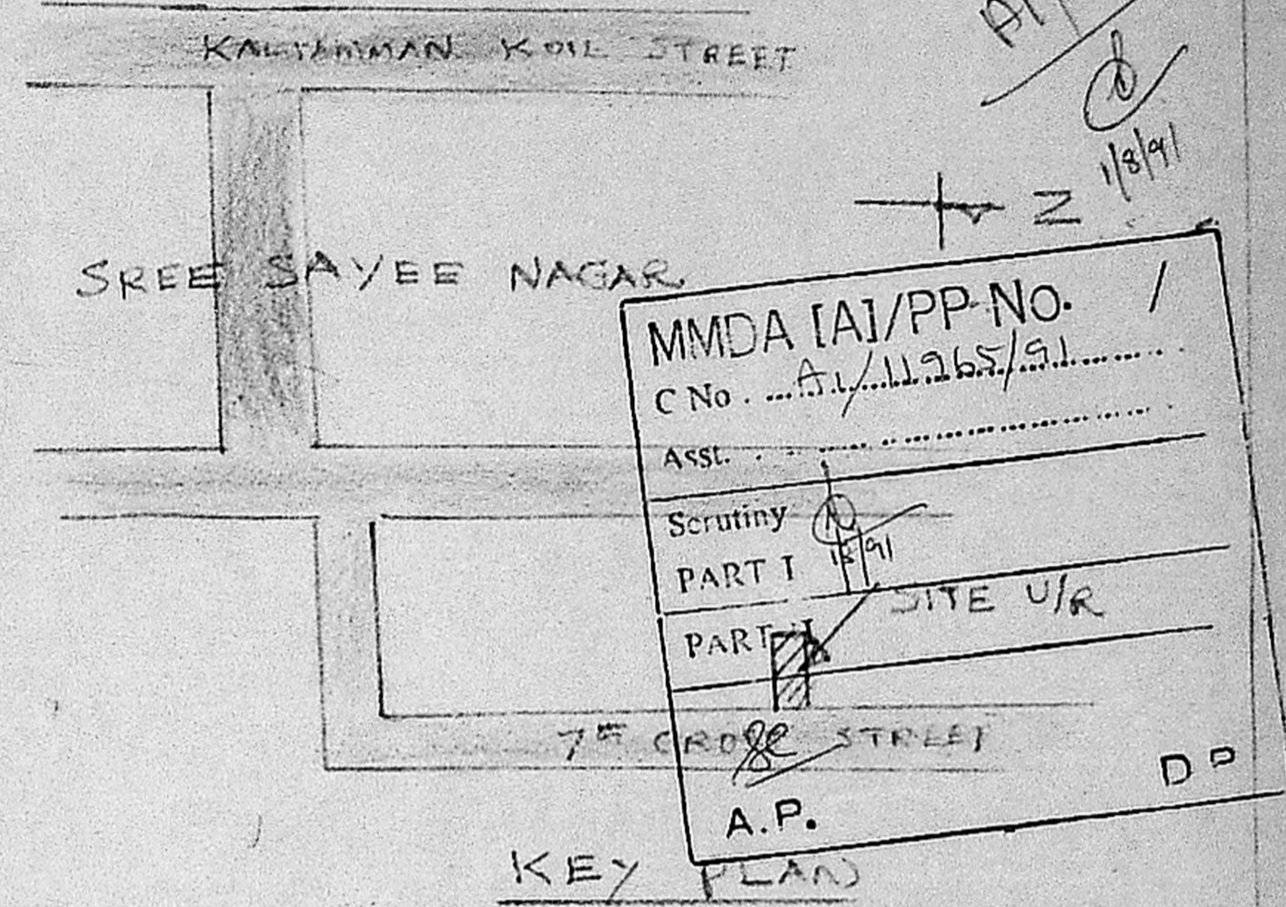 KALIAMMAN KOIL STREET
1/8/91
Z
SREE SAYEE NAGAR
MMDA [A]/PP No. /
C No. A1/11965/91
Asst.
Scrutiny
PART I
SITE U/R
PART II
7TH CROSS STREET
A.P.
D P
KEY PLAN